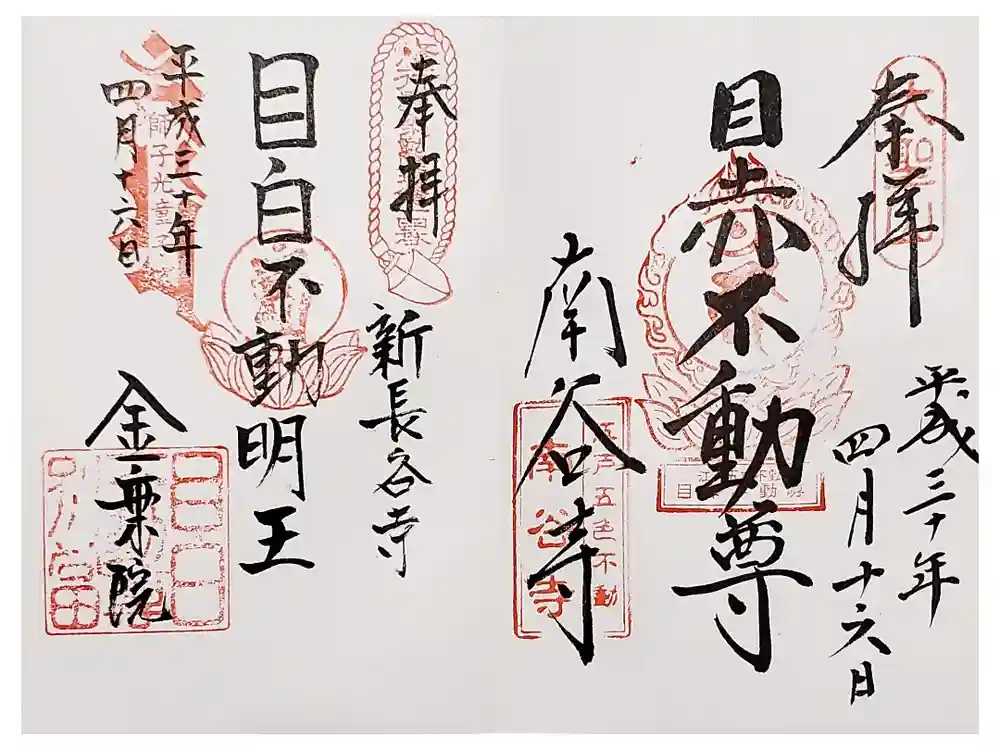 奉拝
平成三十年
四月十六日
目赤不動尊
南谷寺
江戸五色不動
南谷寺
奉拝
新長谷寺
目白不動明王
金乗院
師子光童
平成三十年
四月十六日